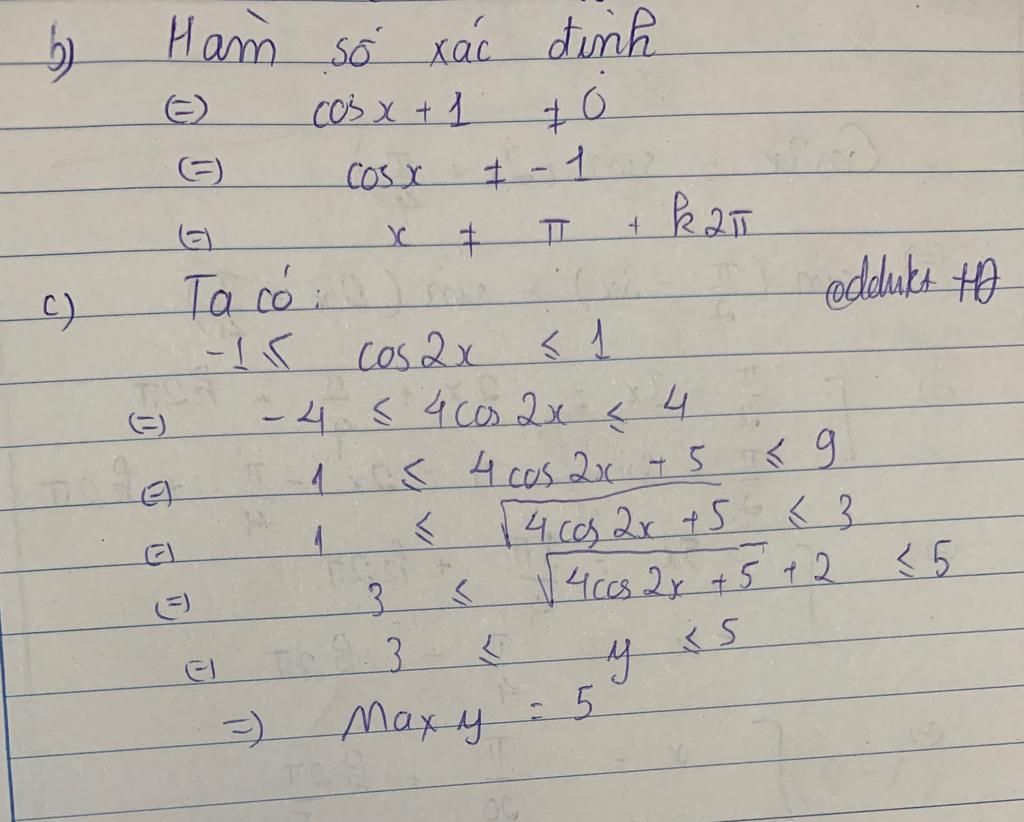 b) Hàm số xác định
(=) cosx + 1 ≠ 0
(=) cosx ≠ -1
(=) x ≠ π + k2π
c) Ta có:
-1 ≤ cos2x ≤ 1
(=) -4 ≤ 4cos2x ≤ 4
(=) 1 ≤ 4cos2x + 5 ≤ 9
(=) 1 ≤ √(4cos2x + 5) ≤ 3
(=) 3 ≤ √(4cos2x + 5) + 2 ≤ 5
(=) 3 ≤ y ≤ 5
=) Max y = 5